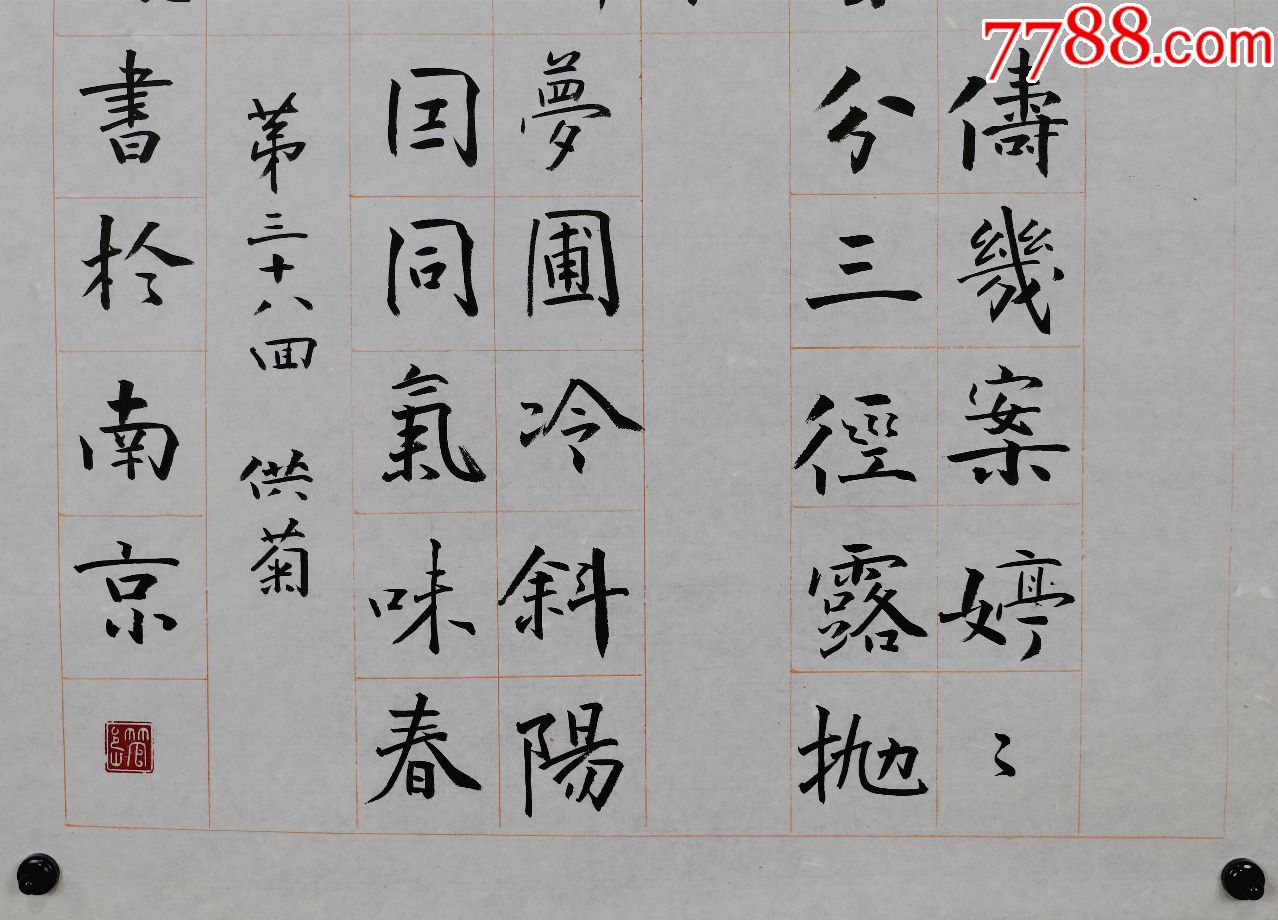 7788.com
儔幾案婷〻
分三徑露抛
夢圃冷斜陽
因同氣味春
第三十八回 供菊
書於南京